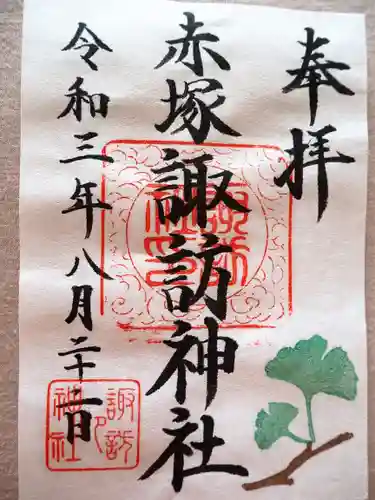 奉拝
赤塚諏訪神社
令和三年八月二十二日
諏訪
神社